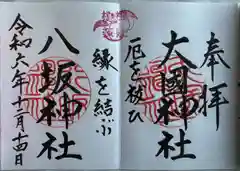 奉拝
大國神社
厄を祓ひ
縁を結ぶ
八坂神社
令和六年十一月十四日